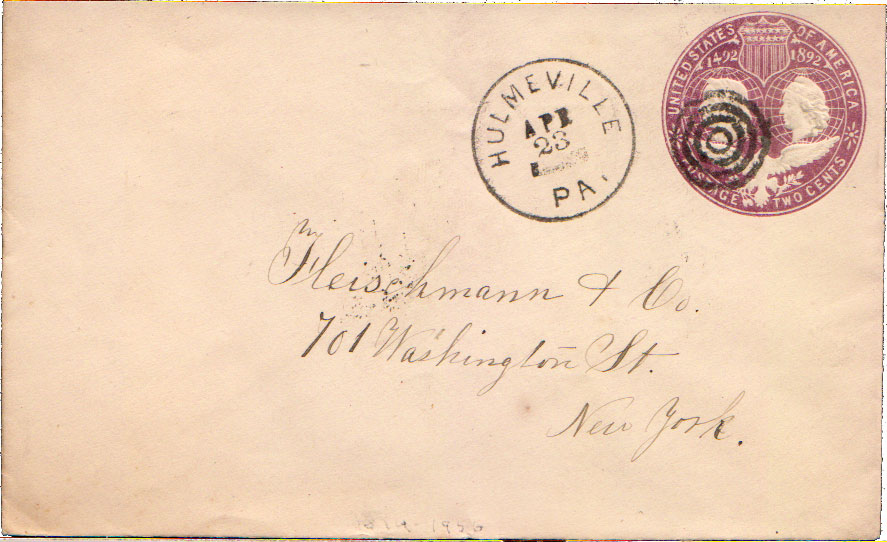 UNITED STATES OF AMERICA
1492 1892
POSTAGE TWO CENTS
HULMEVILLE
APR
23
PA.
Fleischmann & Co.
701 Washington St.
New York.